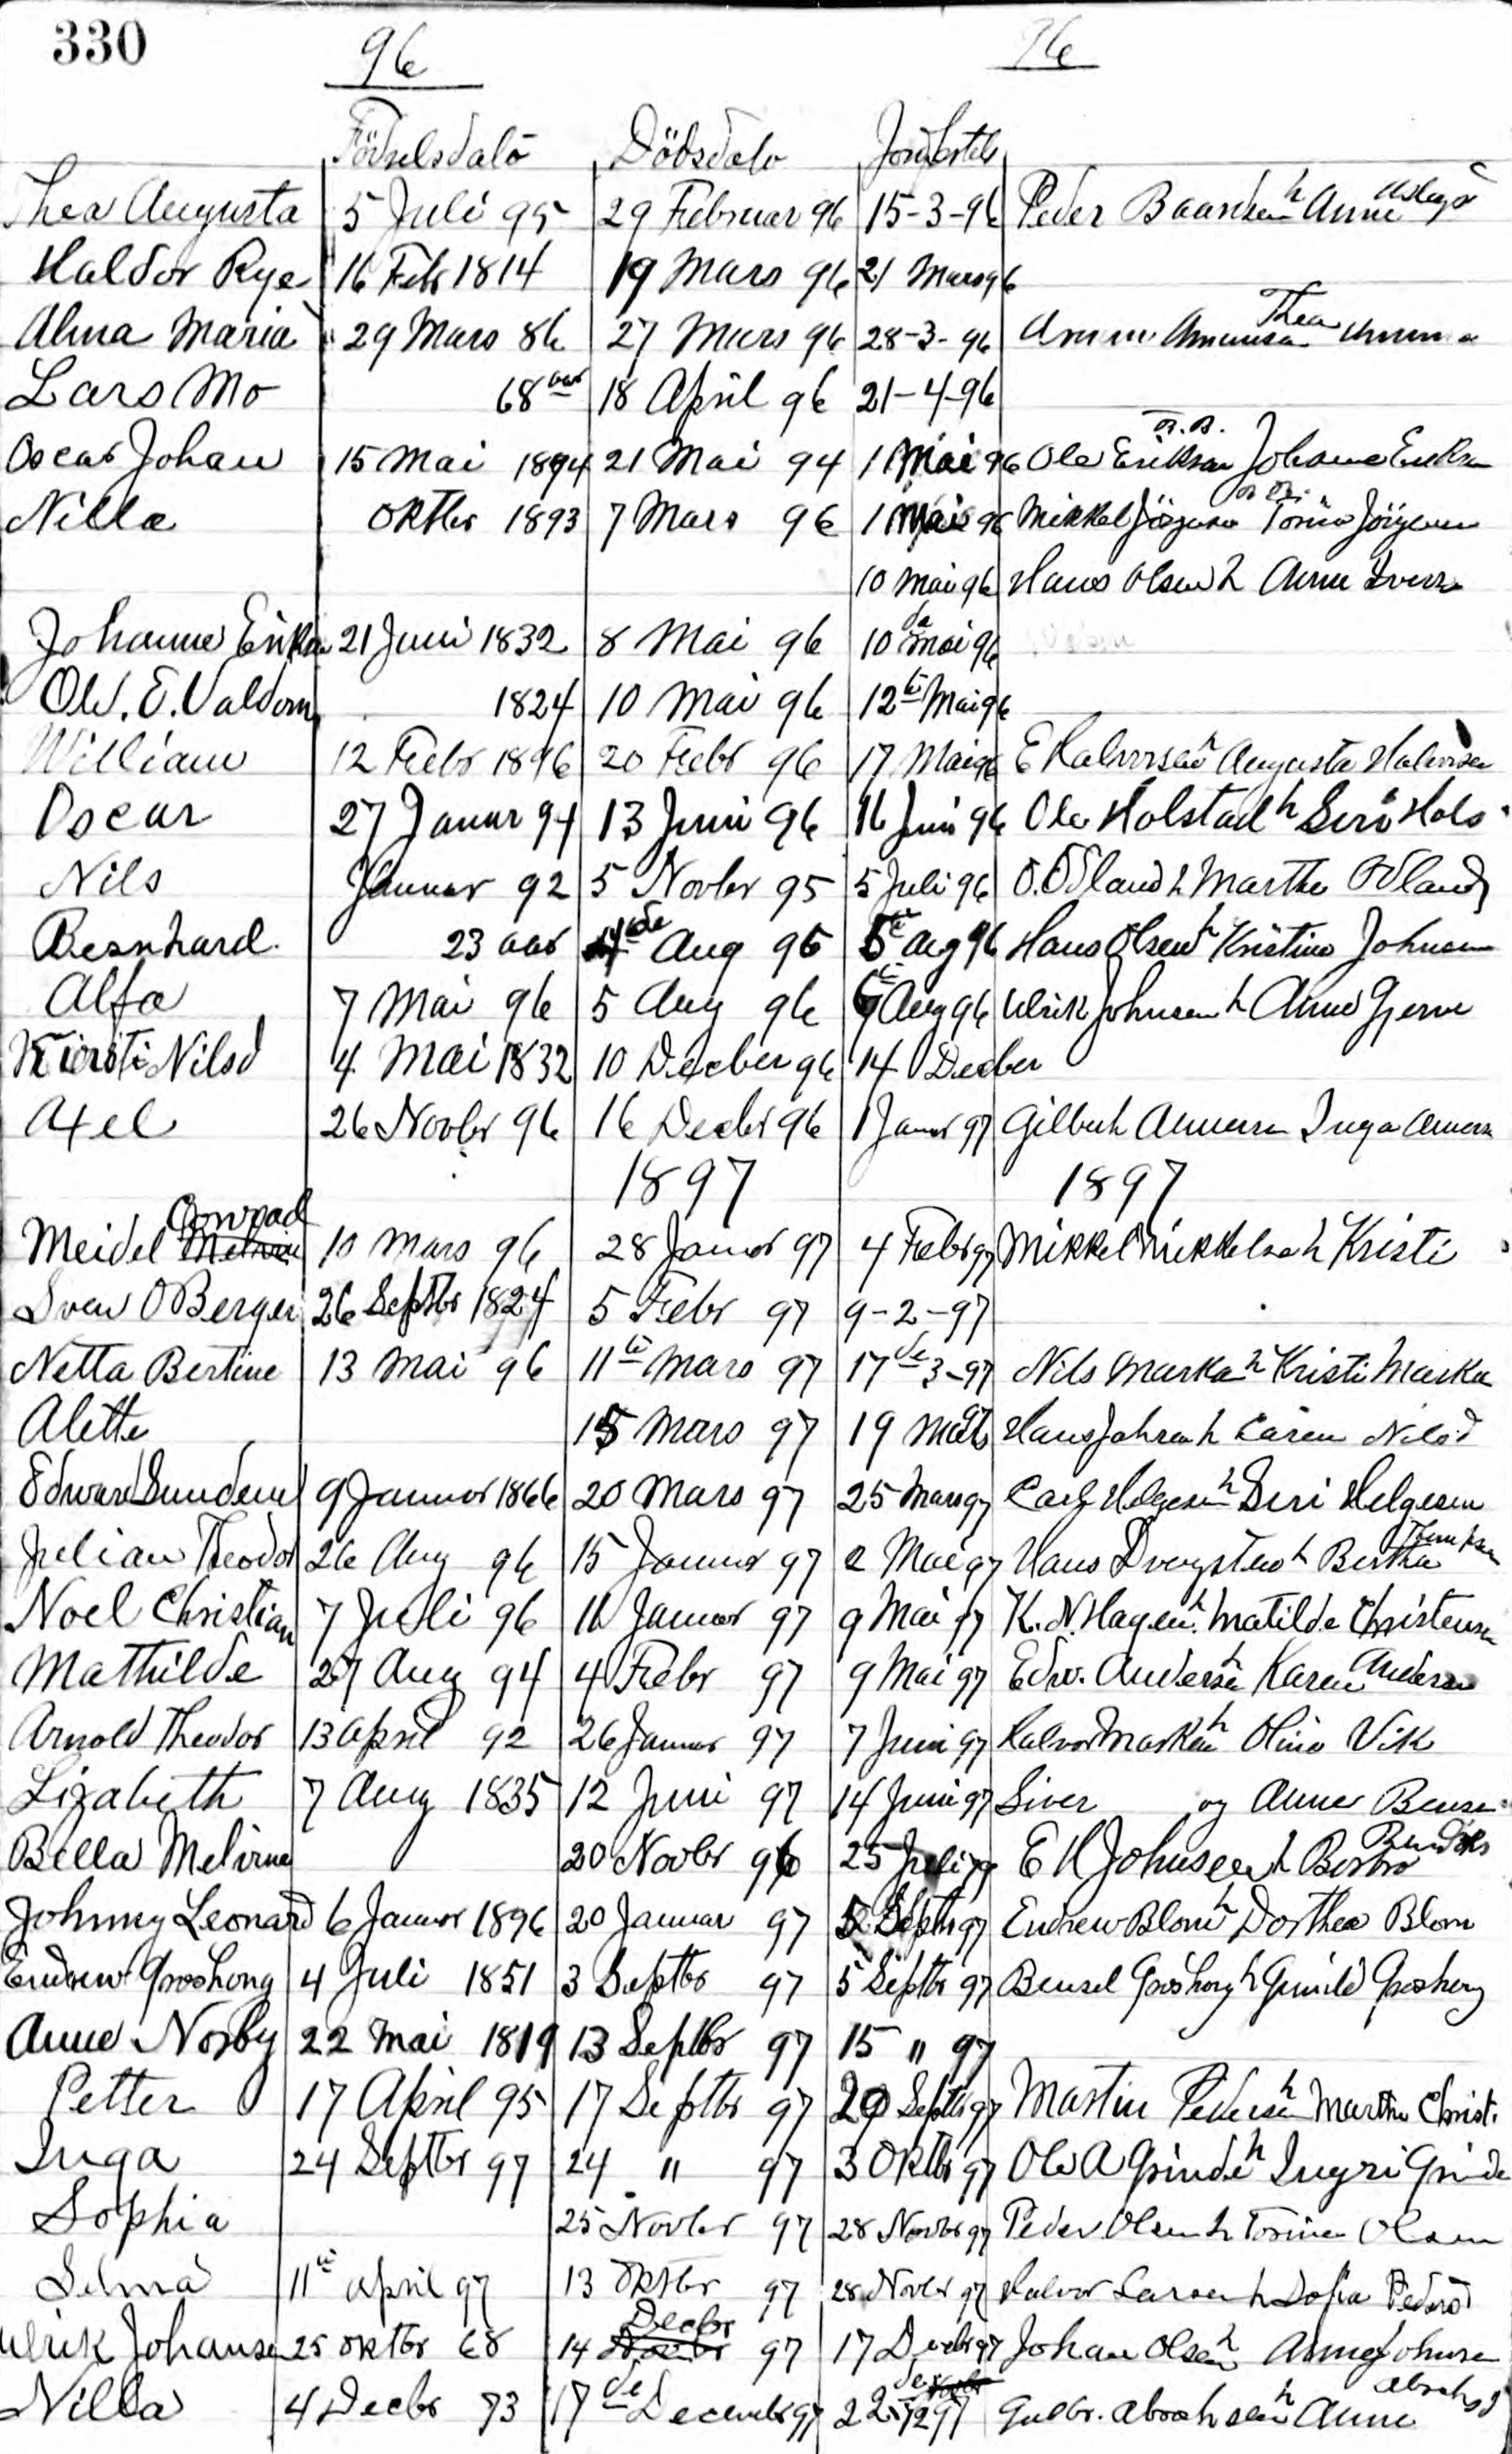 330
96 96
Födselsdato Dödsdato Jordfestels
Thea Augusta 5 Juli 95 29 Februar 96 15-3-96 Peder Baardsen h Anne
Haldor Rye 16 Feb 1814 19 Mars 96 21 Mars 96
Alma Maria 29 Mars 86 27 Mars 96 28-3-96 Thea
Lars Mo 68 aar 18 April 96 21-4-96
Oscar Johan 15 Mai 1894 21 Mai 94 1 Mai 96 Ole Eriksen Johanne Eriksen
Nilla Oktbr 1893 7 Mars 96 1 Mai 96 Mikkel Jörgensen Torine Jörgensen
10 Mai 96 Hans Olsen h Anne Ivers
Johanne Eriksen 21 Juni 1832 8 Mai 96 10 de Mai 96
Ole. E. Valdom 1824 10 Mai 96 12 te Mai 96
William 12 Febr 1896 20 Febr 96 17 Mai 96 E Halvorsen h Augusta Halvorsen
Oscar 27 Januar 94 13 Juni 96 16 Juni 96 Ole Holstad h Siri Hols
Nils Januar 92 5 Novbr 95 5 Juli 96 O. Ödland h Marthe Ödland
Bernhard 23 aar 4 de Aug 96 5 te Aug 96 Hans Olsen h Kristine Johnsen
Alfa 7 Mai 96 5 Aug 96 Aug 96 Ulrik Johnsen h Anne Gjerve
Kiersti Nilsd 4 Mai 1832 10 Decber 96 14 Decber
Axel 26 Novbr 96 16 Decbr 96 1 Janr 97 Gilbert Inga
1897 1897
Conrad
Meidel Melvin 10 Mars 96 28 Januar 97 4 Febr 97 Mikkel Mikkelsen h Kristi
Sven O Berger 26 Septbr 1824 5 Febr 97 9-2-97
Netta Bertine 13 Mai 96 11 te Mars 97 17 de 3-97 Nils Marka h Kristi Marka
Alette 15 Mars 97 19 97 Hans Johnsen h Karen Nilsd
Edward 9 Januar 1866 20 Mars 97 25 Mars 97 Carl Helgesen h Siri Helgesen
Julian Theodor 26 Aug 96 15 Januar 97 2 Mai 97 Hans h Bertha
Noel Christian 7 Juli 96 11 Januar 97 9 Mai 97 K. N. Hagen h Matilde Christensen
Mathilde 27 Aug 94 4 Febr 97 9 Mai 97 Edw. Andersen h Karen Andersen
Arnold Theodor 13 April 92 26 Januar 97 7 Juni 97 Halvor h Oline Vik
Lizabeth 7 Aug 1835 12 Juni 97 14 Juni 97 Siver og Anne
Bella Melvina 20 Novbr 96 25 Juli 97 E H Johnsen h
Johnny Leonard 6 Januar 1896 20 Januar 97 5 Septbr 97 Endrew Blom h Dorthea Blom
Endrew Groshong 4 Juli 1851 3 Septbr 97 5 Septbr 97 Groshong h Gunild Groshong
Anne Norby 22 Mai 1819 13 Septbr 97 15 " 97
Petter 17 April 95 17 Septbr 97 Septbr 97 Martin Pedersen h Martha Christ.
Inga 24 Septbr 97 24 " 97 3 Oktbr 97 Ole A Grinde h Ingri Grinde
Sophia 25 Novbr 97 28 Novbr 97 Peder Olsen h Torine Olsen
Selma 11 te April 97 13 Oktbr 97 28 Novbr 97 Halvor Larsen h Sofia Pedersd
Ulrik Johansen 25 Oktbr 68 14 Decbr 97 17 Decbr 97 Johan Olsen h Anne Johnsen
Nilla 4 Decbr 73 17 de Decembr 97 22 de 12 97 Gulbr. Abrahsen h Anne Abrahsd